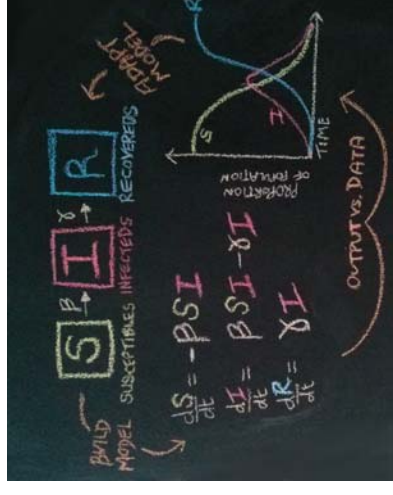 BUILD
MODEL
S β→ I γ→ R
SUSCEPTIBLES INFECTEDS RECOVEREDS
ADAPT
MODEL
dS/dt = -βSI
dI/dt = βSI-γI
dR/dt = γI
PROPORTION
OF POPULATION
S
I
R
TIME
OUTPUT VS. DATA